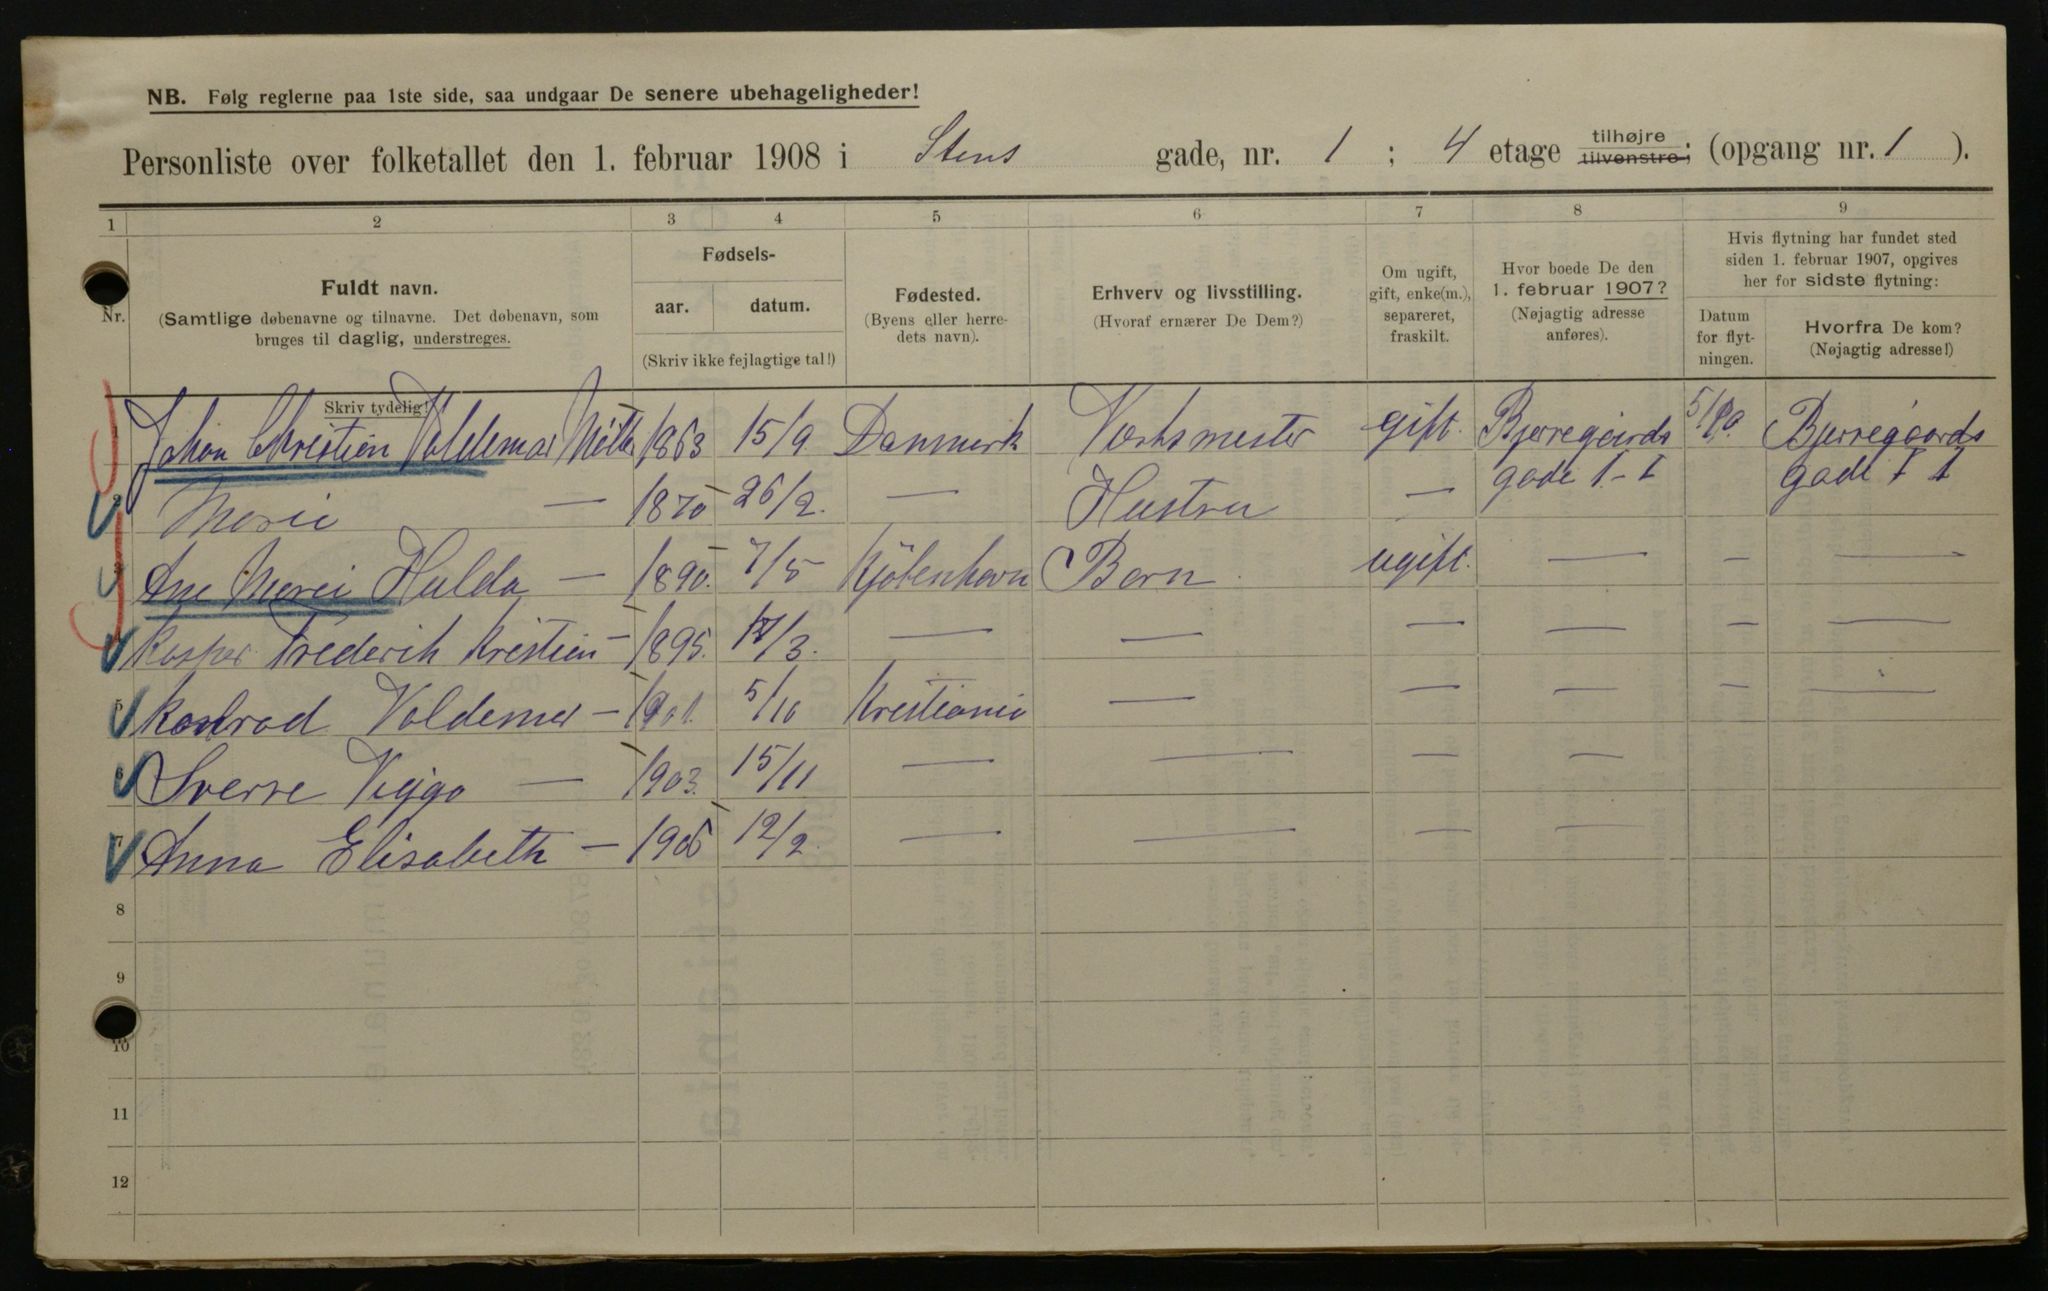 NB. Følg reglerne paa 1ste side, saa undgaar De senere ubehageligheder!
Personliste over folketallet den 1. februar 1908 i Stens gade, nr. 1 ; 4 etage tilhøjre tilvenstre; (opgang nr. 1 ).
1 2 3 4 5 6 7 8 9
Nr.
Fuldt navn.
(Samtlige døbenavne og tilnavne. Det døbenavn, som
bruges til daglig, understreges.
Skriv tydelig!
Fødsels-
aar. datum.
(Skriv ikke fejlagtige tal!)
Fødested.
(Byens eller herre-
dets navn).
Erhverv og livsstilling.
(Hvoraf ernærer De Dem?)
Om ugift,
gift, enke(m.),
separeret,
fraskilt.
Hvor boede De den
1. februar 1907?
(Nøjagtig adresse
anføres).
Hvis flytning har fundet sted
siden 1. februar 1907, opgives
her for sidste flytning:
Datum
for flyt-
ningen.
Hvorfra De kom?
(Nøjagtig adresse!)
1 Johan Christian Valdemar 1863 15/9 Danmark Værksmester gift. Bjerregaards Bjerregaards
gade 1 - I gade I I
2 Marie — 1870 26/2. — Hustru —
3 Ane Marie Hulda — 1890. 7/5 Kjøbenhavn Barn ugift. — — —
4 Kasper Frederik Kristian — 1895. 17/3. — — — — — —
5 Konrad Valdemar — 1901. 5/10 Kristiania — — — — —
6 Sverre Viggo — 1903. 15/11 — — — —
7 Anna Elisabeth — 1906 12/2. — — — —
8
9
10
11
12